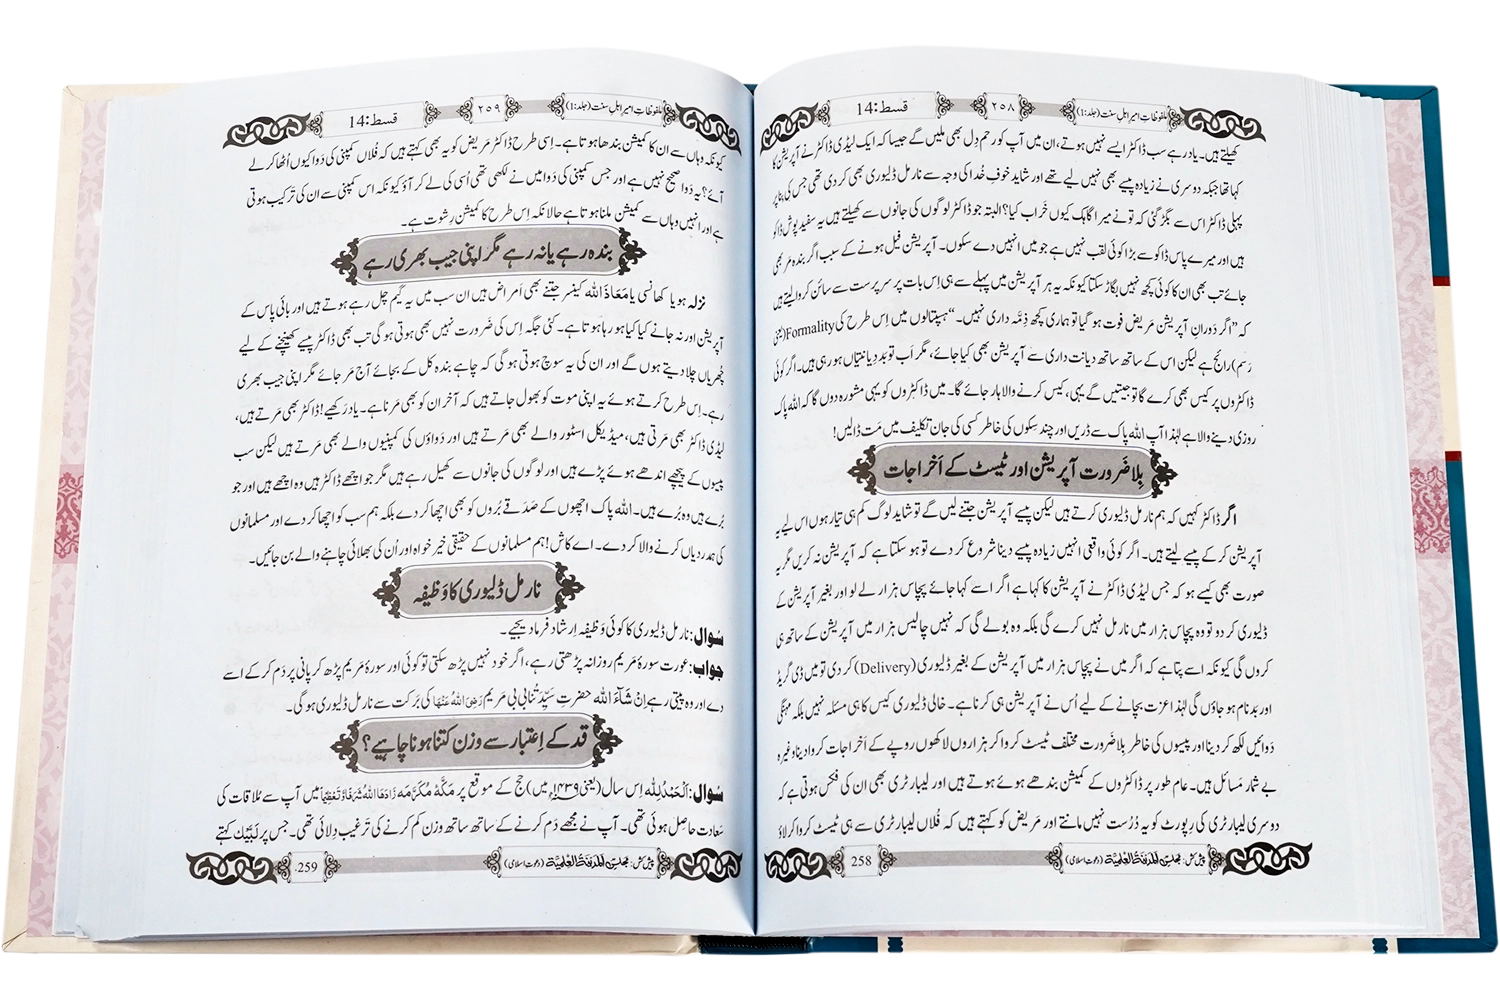 ملفوظاتِ امیرِ اہلِ سنت (جلد:1) ٢٥٨ قسط:14
کھیلتے ہیں۔ یاد رہے سب ڈاکٹر ایسے نہیں ہوتے، ان میں آپ کو رحم دِل بھی ملیں گے جیسا کہ ایک لیڈی ڈاکٹر نے آپریشن کا
کہا تھا جبکہ دوسری نے زیادہ پیسے بھی نہیں لیے تھے اور شاید خوفِ خُدا کی وجہ سے نارمل ڈلیوری بھی کر دی تھی جس کی بنا پر
پہلی ڈاکٹر اس سے بگڑ گئی کہ تو نے میرا گاہک کیوں خَراب کیا؟ البتہ جو ڈاکٹر لوگوں کی جانوں سے کھیلتے ہیں یہ سفید پوش ڈاکو
ہیں اور میرے پاس ڈاکو سے بڑا کوئی لقب نہیں ہے جو میں انہیں دے سکوں۔ آپریشن فیل ہونے کے سبب اگر بندہ مَر بھی
جائے تب بھی ان کا کوئی کچھ نہیں بگاڑ سکتا کیونکہ یہ ہر آپریشن میں پہلے سے ہی اِس بات پر سرپرست سے سائن کروا لیتے ہیں
کہ ”اگر دَورانِ آپریشن مَریض فوت ہو گیا تو ہماری کچھ ذِمَّہ داری نہیں۔“ ہسپتالوں میں اِس طرح کی Formality (یعنی
رَسم) رائج ہے لیکن اس کے ساتھ ساتھ دیانت داری سے آپریشن بھی کیا جائے، مگر اَب تو بَددیانتیاں ہو رہی ہیں۔ اگر کوئی
ڈاکٹروں پر کیس بھی کرے گا تو جیتیں گے یہی، کیس کرنے والا ہار جائے گا۔ میں ڈاکٹروں کو یہی مشورہ دوں گا کہ اللہ پاک
روزی دینے والا ہے لہٰذا آپ اللہ پاک سے ڈریں اور چند سکوں کی خاطر کسی کی جان تکلیف میں مَت ڈالیں!
بِلا ضَرورت آپریشن اور ٹیسٹ کے اَخراجات
اگر ڈاکٹر کہیں کہ ہم نارمل ڈلیوری کرتے ہیں لیکن پیسے آپریشن جتنے لیں گے تو شاید لوگ کم ہی تیار ہوں اس لیے یہ
آپریشن کر کے پیسے لیتے ہیں۔ اگر کوئی واقعی انہیں زیادہ پیسے دینا شروع کر دے تو ہو سکتا ہے کہ آپریشن نہ کریں مگر یہ
صورت بھی کیسے ہو کہ جس لیڈی ڈاکٹر نے آپریشن کا کہا ہے اگر اسے کہا جائے پچاس ہزار لے لو اور بغیر آپریشن کے
ڈلیوری کر دو تو وہ پچاس ہزار میں نارمل نہیں کرے گی بلکہ وہ بولے گی کہ نہیں چالیس ہزار میں آپریشن کے ساتھ ہی
کروں گی کیونکہ اسے پتا ہے کہ اگر میں نے پچاس ہزار میں آپریشن کے بغیر ڈلیوری (Delivery) کر دی تو میں ڈی گریڈ
اور بدنام ہو جاؤں گی لہٰذا عزت بچانے کے لیے اُس نے آپریشن ہی کرنا ہے۔ خالی ڈلیوری کیس کا ہی مسئلہ نہیں بلکہ مہنگی
دَوائیں لکھ کر دینا اور پیسوں کی خاطر بلاضَرورت مختلف ٹیسٹ کروا کر ہزاروں لاکھوں روپے کے اَخراجات کروا دینا وغیرہ
بے شمار مَسائل ہیں۔ عام طور پر ڈاکٹروں کے کمیشن بندھے ہوئے ہوتے ہیں اور لیبارٹری بھی ان کی فکس ہوتی ہے کہ
دوسری لیبارٹری کی رِپورٹ کو یہ دُرُست نہیں مانتے اور مَریض کو کہتے ہیں کہ فُلاں لیبارٹری سے ہی ٹیسٹ کروا کر لاؤ
پیش کش: مجلس المدینۃ العلمیۃ (دعوتِ اسلامی) 258
ملفوظاتِ امیرِ اہلِ سنت (جلد:1) ٢٥٩ قسط:14
کیونکہ وہاں سے ان کا کمیشن بندھا ہوتا ہے۔ اِسی طرح ڈاکٹر مَریض کو یہ بھی کہتے ہیں کہ فُلاں کمپنی کی دَوا کیوں اُٹھا کر لے
آئے؟ یہ دَوا صحیح نہیں ہے اور جس کمپنی کی دَوا میں نے لکھی تھی اُسی کی لے کر آؤ کیونکہ اس کمپنی سے ان کی تَرکیب ہوتی
ہے اور انہیں وہاں سے کمیشن ملنا ہوتا ہے حالانکہ اِس طرح کا کمیشن رِشوت ہے۔
بندہ رہے یا نہ رہے مگر اپنی جیب بھری رہے
نزلہ ہو یا کھانسی یا مَعَاذَ اللہ کینسر جتنے بھی اَمراض ہیں ان سب میں یہ گیم چل رہے ہوتے ہیں اور بائی پاس کے
آپریشن اور نہ جانے کیا کیا ہو رہا ہوتا ہے۔ کئی جگہ اِس کی ضَرورت نہیں بھی ہوتی ہو گی تب بھی ڈاکٹر پیسے کھینچنے کے لیے
چُھریاں چلا دیتے ہوں گے اور ان کی یہ سوچ ہوتی ہو گی کہ چاہے بندہ کل کے بجائے آج مَر جائے مگر اپنی جیب بھری
رہے۔ اِس طرح کرتے ہوئے یہ اپنی موت کو بھول جاتے ہیں کہ آخر ان کو بھی مَرنا ہے۔ یاد رَکھیے! ڈاکٹر بھی مَرتے ہیں،
لیڈی ڈاکٹر بھی مَرتی ہیں، میڈیکل اسٹور والے بھی مَرتے ہیں اور دَواؤں کی کمپنیوں والے بھی مَرتے ہیں لیکن سب
پیسوں کے پیچھے اندھے ہوئے پڑے ہیں اور لوگوں کی جانوں سے کھیل رہے ہیں مگر جو اچھے ڈاکٹر ہیں وہ اچھے ہیں اور جو
بُرے ہیں وہ بُرے ہیں۔ اللہ پاک اچھوں کے صَدَقے بُروں کو بھی اچھا کر دے بلکہ ہم سب کو اچھا کر دے اور مسلمانوں
کی ہمدردیاں کرنے والا کر دے۔ اے کاش! ہم مسلمانوں کے حقیقی خیر خواہ اور اُن کی بھلائی چاہنے والے بن جائیں۔
نارمل ڈلیوری کا وَظیفہ
سُوال: نارمل ڈلیوری کا کوئی وَظیفہ اِرشاد فرما دیجیے۔
جواب: عورت سورۂ مَریم روزانہ پڑھتی رہے، اگر خود نہیں پڑھ سکتی تو کوئی اور سورۂ مَریم پڑھ کر پانی پر دَم کر کے اسے
دے اور وہ پیتی رہے اِنْ شَآءَ اللہ حضرتِ سَیِّدَتُنا بی بی مَریم رَضِیَ اللہُ عَنْہَا کی بَرَکت سے نارمل ڈلیوری ہو گی۔
قد کے اِعتبار سے وزن کتنا ہونا چاہیے؟
سُوال: اَلْحَمْدُ لِلّٰہ اِس سال (یعنی ۱۴۳۹ھ میں) حج کے موقع پر مَکَّۂ مُکَرَّمہ زَادَھَا اللہُ شَرَفًا وَّتَعْظِیْمًا میں آپ سے مُلاقات کی
سَعادت حاصِل ہوئی تھی۔ آپ نے مجھے دَم کرنے کے ساتھ ساتھ وزن کم کرنے کی تَرغیب دِلائی تھی۔ جس پر لَبَّیْک کہتے
پیش کش: مجلس المدینۃ العلمیۃ (دعوتِ اسلامی) 259